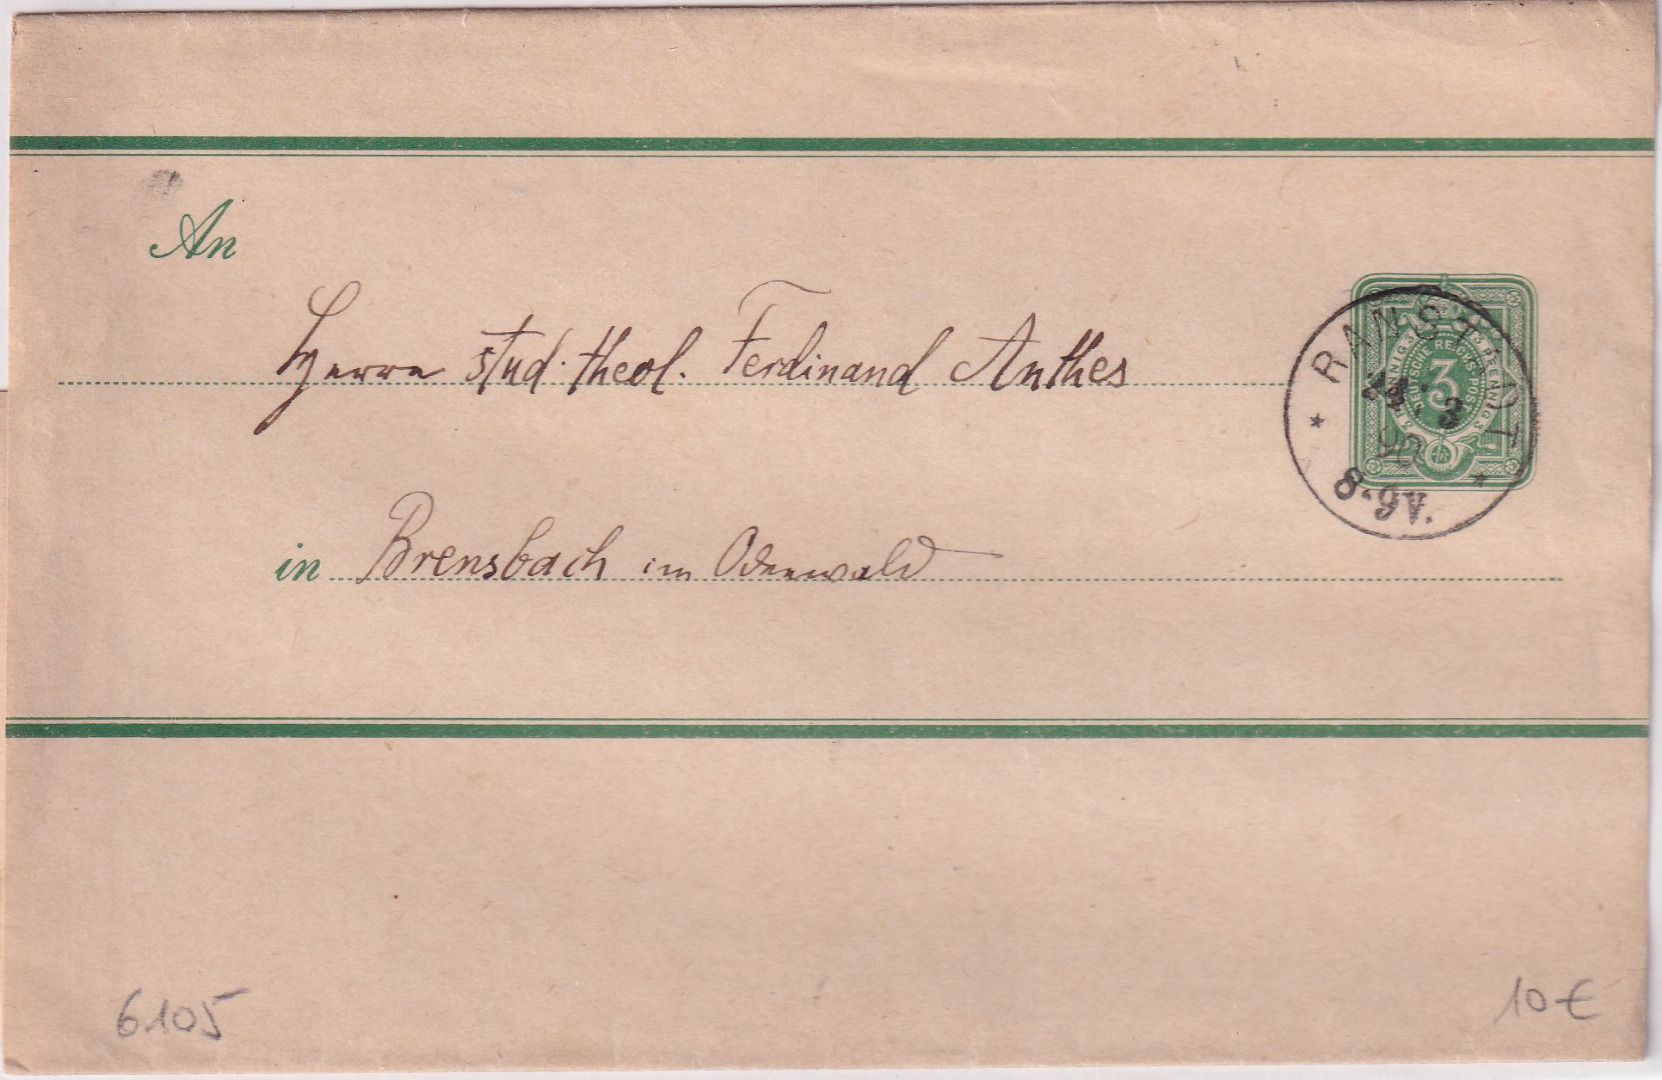 An
Herrn stud. theol. Ferdinand Anthes
in Brensbach im Odenwald
RANSTADT
3
90
8-9V.
3 PFENNIG 3
DEUTSCHE REICHSPOST
3
6.105
10€